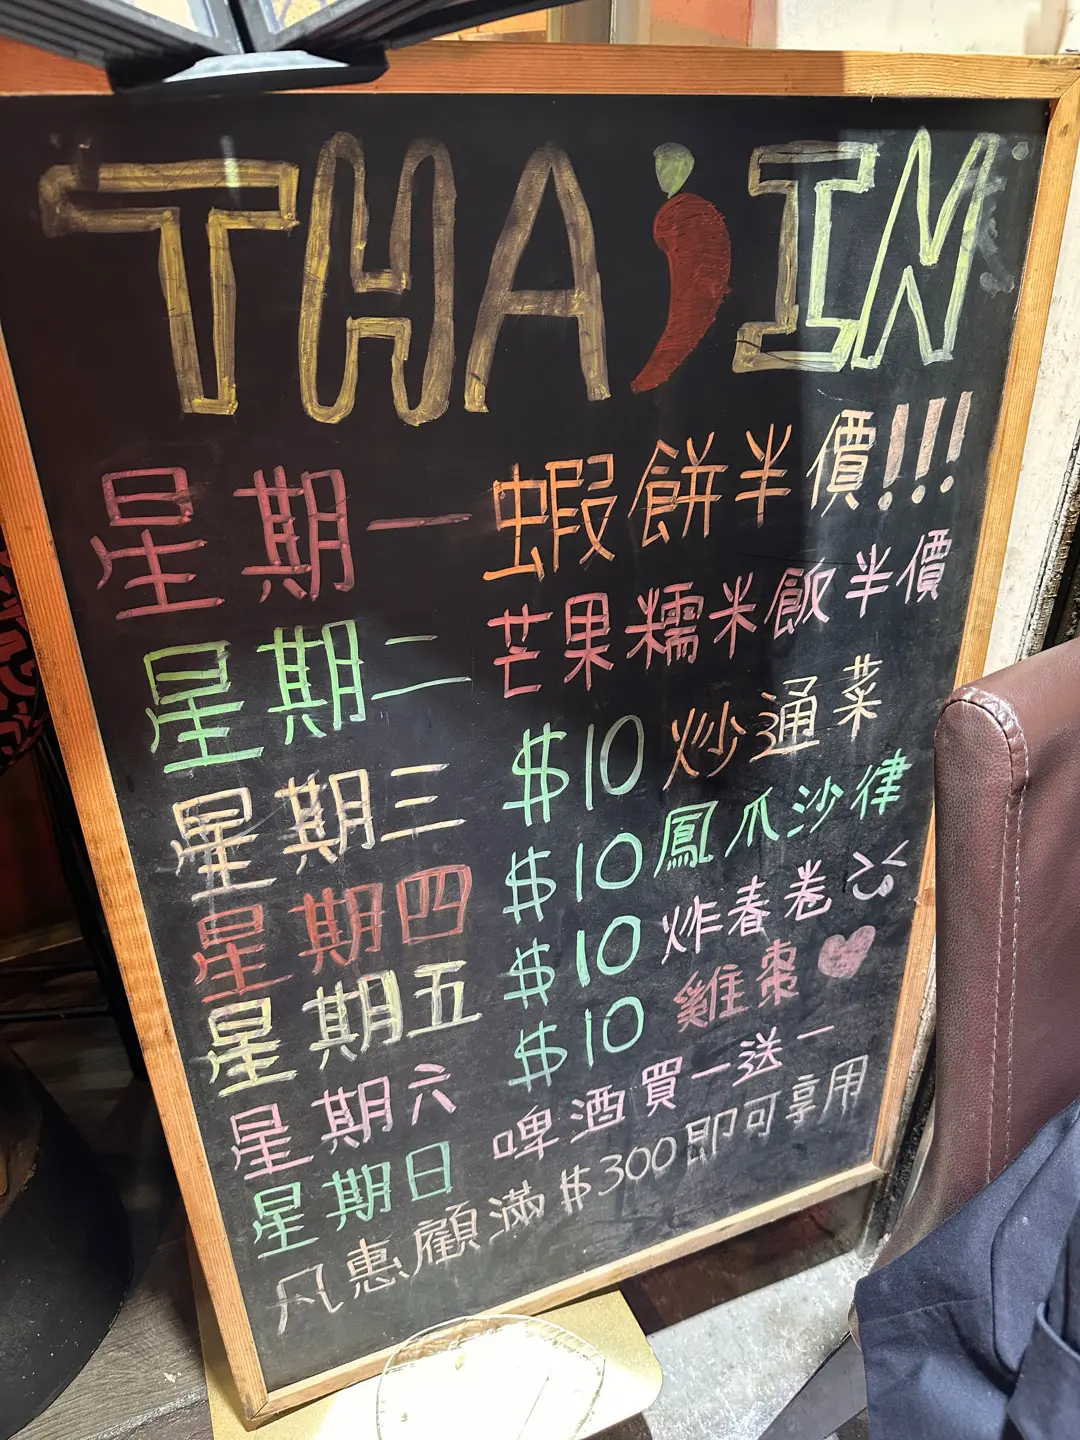 THAI IN
星期一 蝦餅半價!!!
星期二 芒果糯米飯半價
星期三 $10 炒通菜
星期四 $10 鳳爪沙律
星期五 $10 炸春卷
星期六 $10 雞棗
星期日 啤酒買一送一
凡惠顧滿$300即可享用